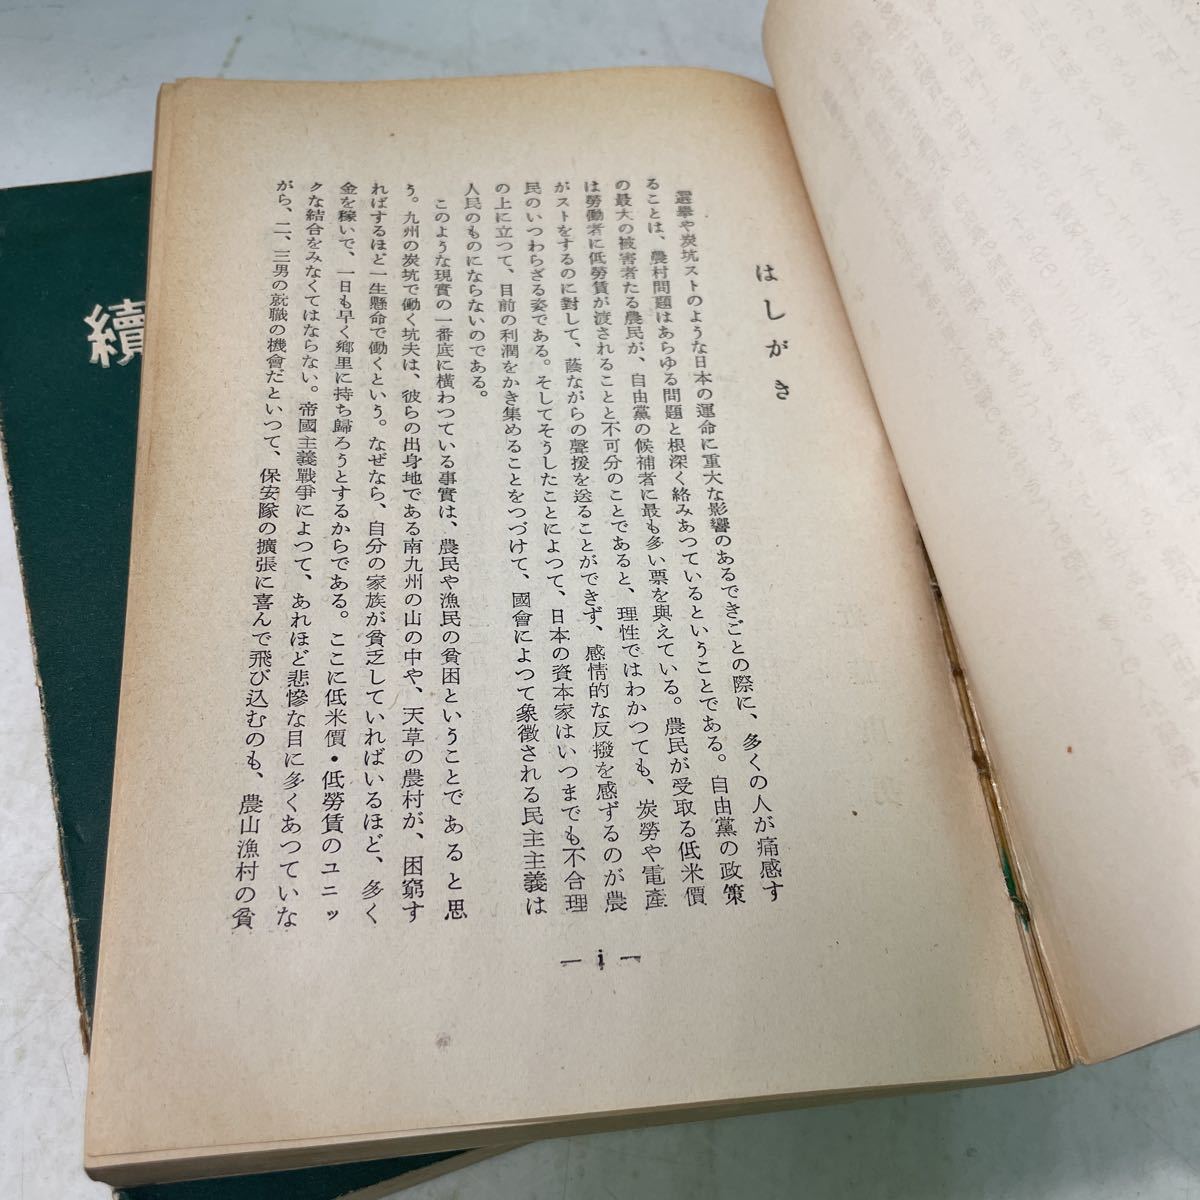 はしがき
選擧や炭坑ストのような日本の運命に重大な影響のあるできごとの際に、多くの人が痛感す
ることは、農村問題はあらゆる問題と根深く絡みあつているということである。自由黨の政策
の最大の被害者たる農民が、自由黨の候補者に最も多い票を與えている。農民が受取る低米價
は勞働者に低勞賃が渡されることと不可分のことであると、理性ではわかつても、炭勞や電產
がストをするのに對して、蔭ながらの聲援を送ることができず、感情的な反撥を感ずるのが農
民のいつわらざる姿である。そしてそうしたことによつて、日本の資本家はいつまでも不合理
の上に立つて、目前の利潤をかき集めることをつづけて、國會によつて象徵される民主主義は
人民のものにならないのである。
このような現實の一番底に橫わつている事實は、農民や漁民の貧困ということであると思
う。九州の炭坑で働く坑夫は、彼らの出身地である南九州の山の中や、天草の農村が、困窮す
ればするほど一生懸命で働くという。なぜなら、自分の家族が貧乏していればいるほど、多く
金を稼いで、一日も早く鄉里に持ち歸ろうとするからである。ここに低米價・低勞賃のユニッ
クな結合をみなくてはならない。帝國主義戰爭によつて、あれほど悲慘な目に多くあつていな
がら、二、三男の就職の機會だといつて、保安隊の擴張に喜んで飛び込むのも、農山漁村の貧
— i —
續